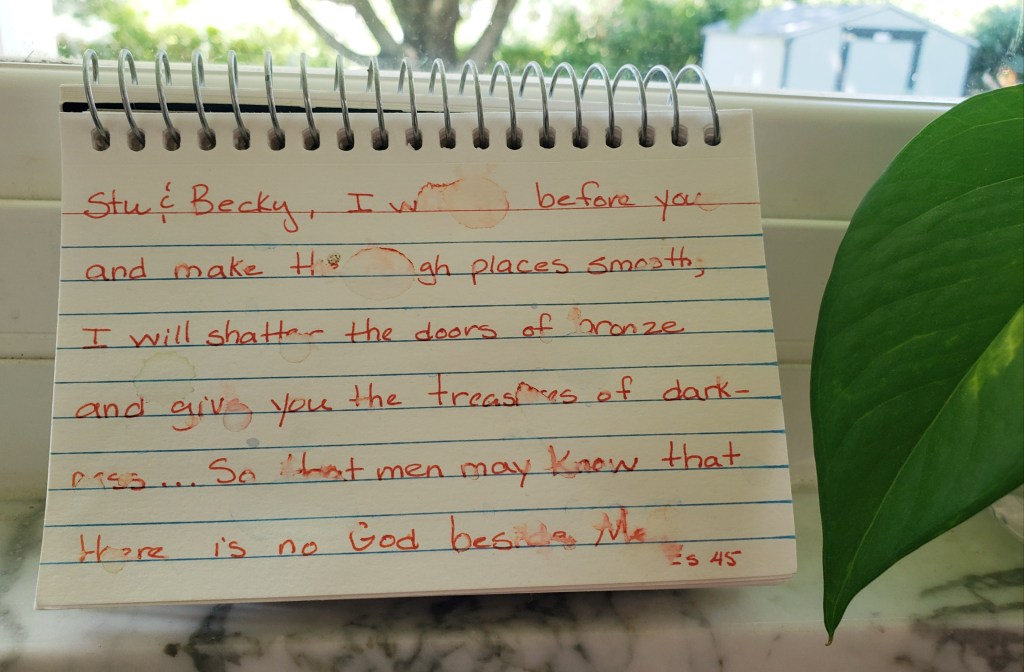 Stu & Becky, I before you
and make places smooth,
I will shatter the doors of bronze
and give you the treasures of dark-
ness... So that men may know that
there is no God beside Me
Is 45